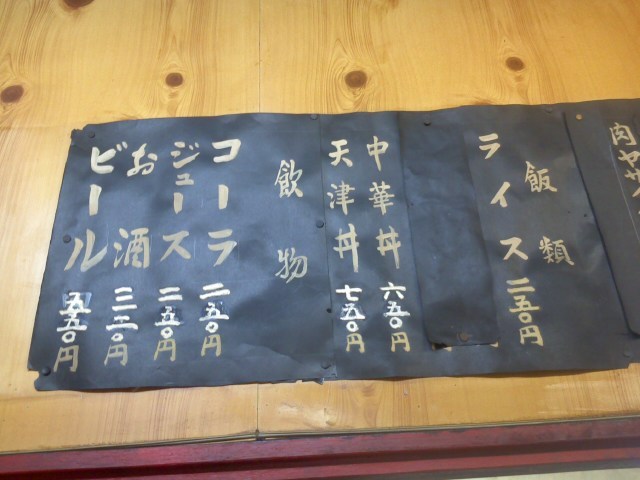 肉ヤサイ
飯類
ライス 二五〇円
中華丼 六五〇円
天津丼 七五〇円
飲物
コーラ 二五〇円
ジュース 二五〇円
お酒 三三〇円
ビール 五五〇円